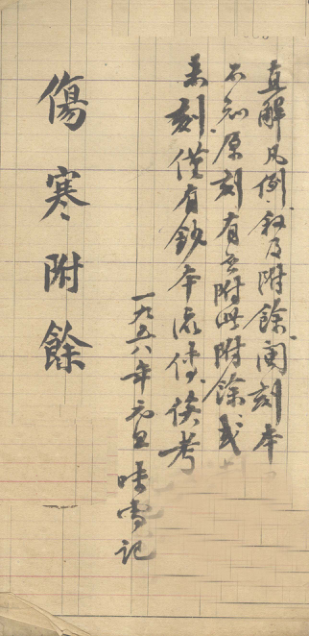 直解凡例、叙及附餘、閩刻本
不知原刻有无附此附餘或
未刻僅有鈔本流傳俟考
一九五八年元旦記
傷寒附餘